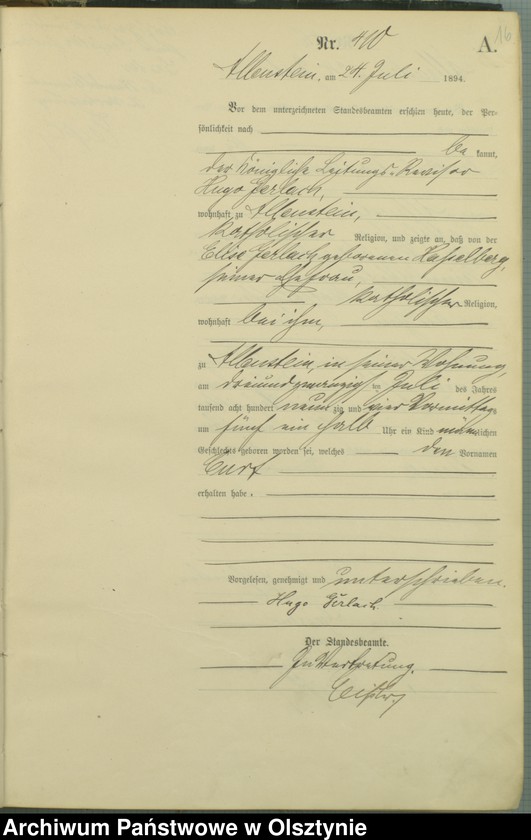 16
Nr. 410 A.
Allenstein, am 24. Juli 1894.
Vor dem unterzeichneten Standesbeamten erschien heute, der Per-
sönlichkeit nach
be kannt,
der Königliche Revisor
Hugo Gerlach,
wohnhaft zu Allenstein,
katholischer Religion, und zeigte an, daß von der
Elise Gerlach geborenen Hasselberg,
seiner Ehefrau,
katholischer Religion,
wohnhaft bei ihm,
zu Allenstein, in seiner Wohnung,
am dreiundzwanzigsten Juli des Jahres
tausend acht hundert neunzig und vier Vormittags
um fünf ein halb Uhr ein Kind männlichen
Geschlechts geboren worden sei, welches den Vornamen
Curt
erhalten habe.
Vorgelesen, genehmigt und unterschrieben.
Hugo Gerlach.
Der Standesbeamte.
In Vertretung.
Archiwum Państwowe w Olsztynie